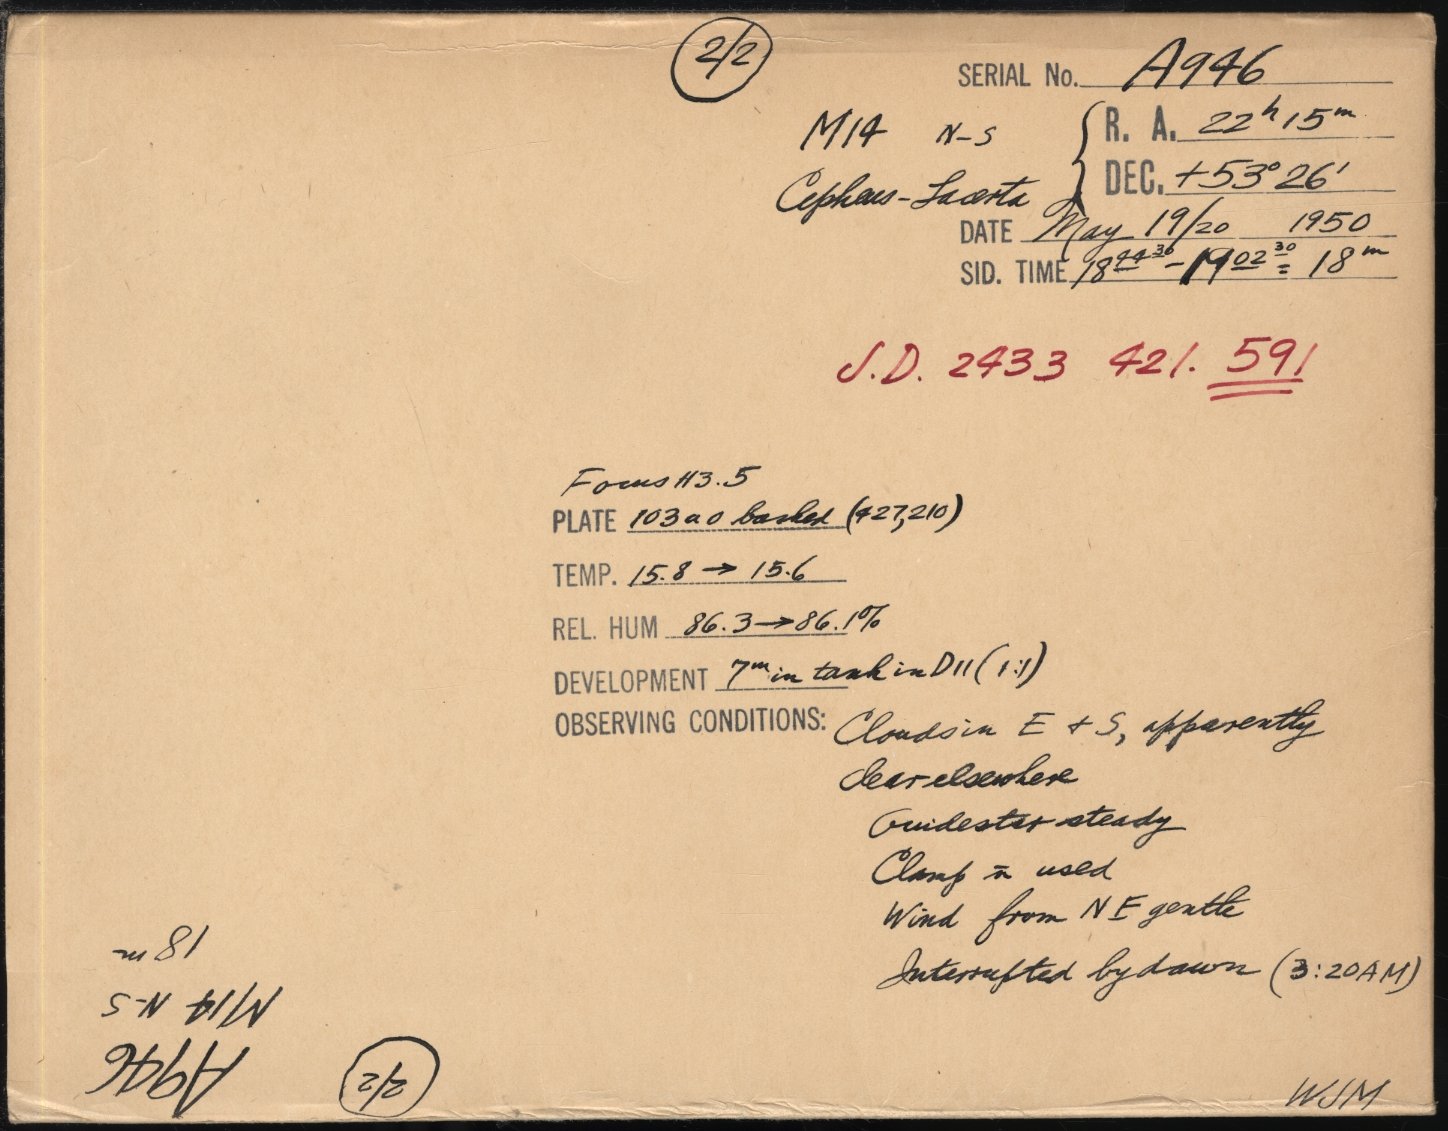 2/2
SERIAL No. A946
M14 N-S
R. A. 22h 15m
DEC. +53° 26'
Cepheus-Lacerta
DATE May 19/20 1950
SID. TIME 18 44 30 - 19 02 30 = 18m
J.D. 2433 421. 591
Focus 43.5
PLATE 103 a O backed (427,210)
TEMP. 15.8 → 15.6
REL. HUM 86.3 → 86.1%
DEVELOPMENT 7m in tank in D11 (1:1)
OBSERVING CONDITIONS: Clouds in E + S, apparently
clear elsewhere
Guidestar steady
Clamp n̄ used
Wind from NE gentle
Interrupted by dawn (3:20 AM)
WJM
2/2
A946
M14 N-S
18m